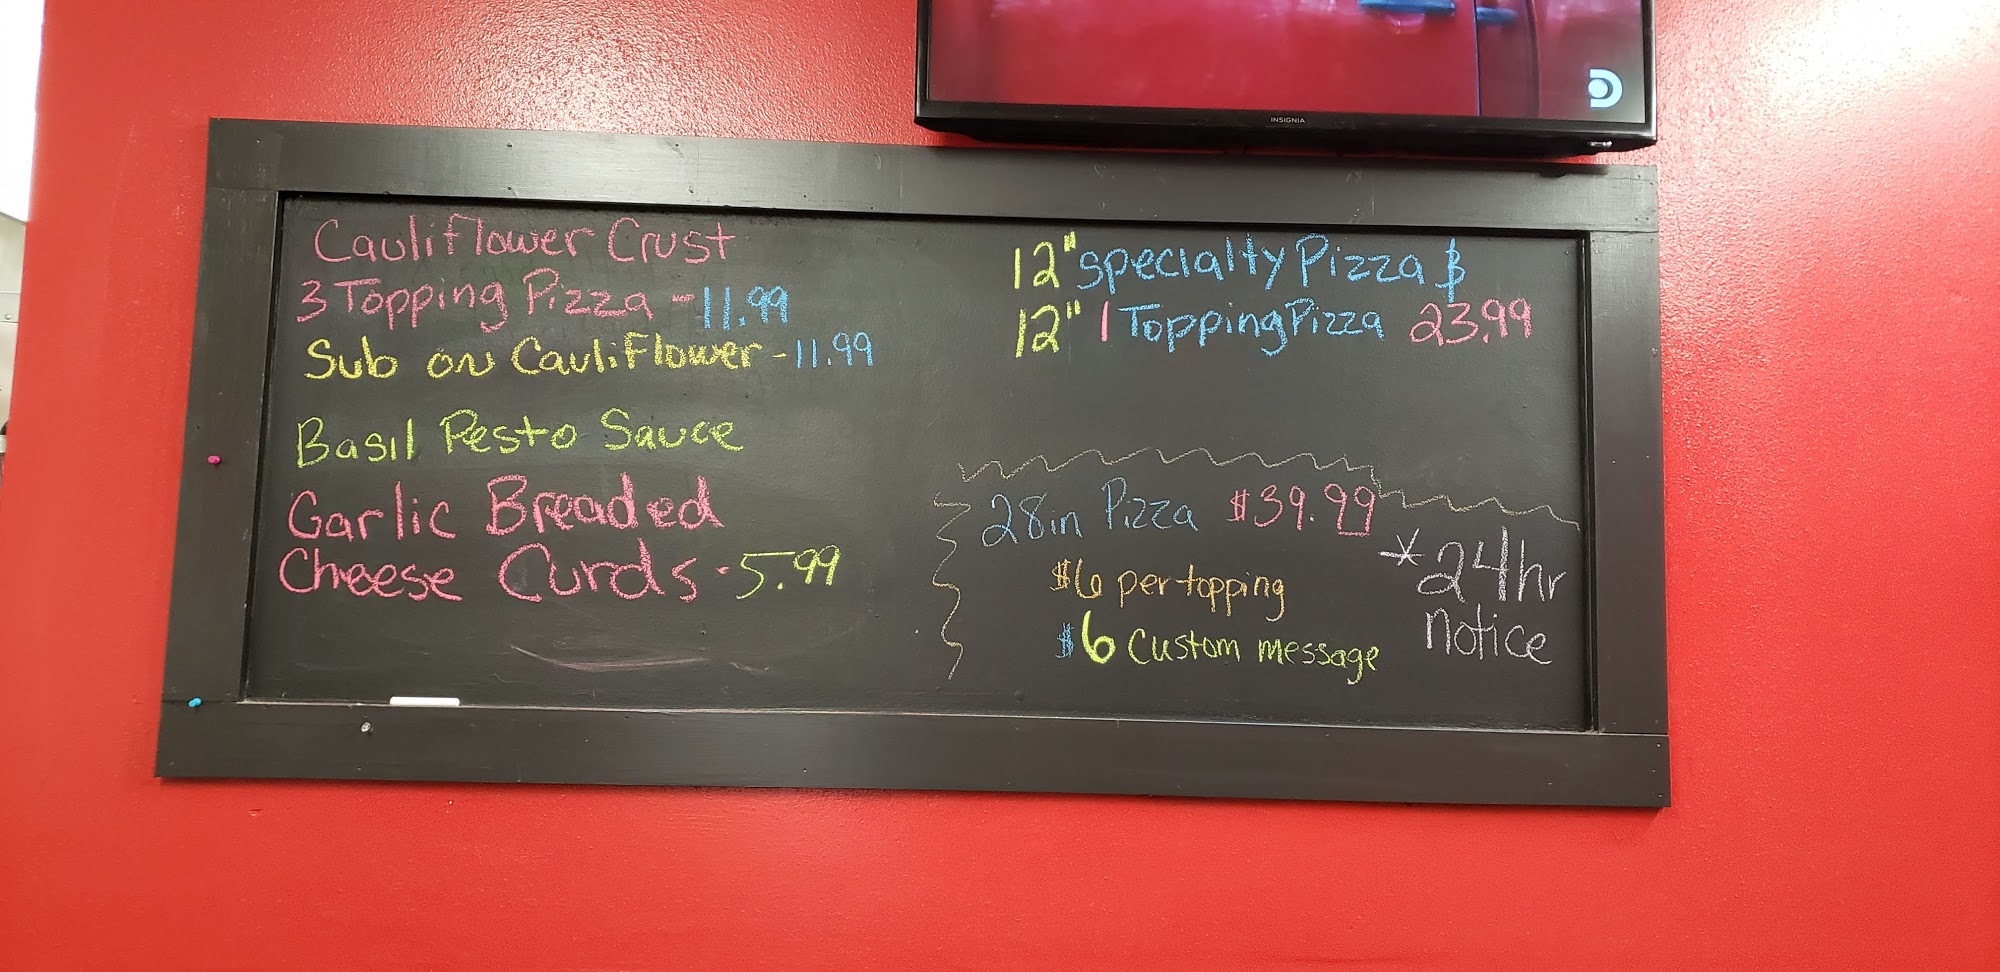 INSIGNIA
Cauliflower Crust
3 Topping Pizza - 11.99
Sub on Cauliflower - 11.99
Basil Pesto Sauce
Garlic Breaded
Cheese Curds - 5.99
12" Specialty Pizza $
12" 1 Topping Pizza 23.99
28in Pizza $39.99
$6 per topping
$6 Custom message
*24hr
notice